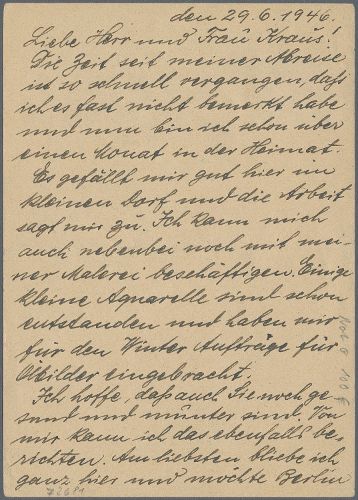 den 29.6.1946.
Liebe Herr und Frau Kraus!
Die Zeit seit meiner Abreise
ist so schnell vergangen, daß
ich es fast nicht bemerkt habe
und nun bin ich schon über
einen Monat in der Heimat.
Es gefällt mir gut hier im
kleinen Dorf und die Arbeit
sagt mir zu. Ich kann mich
auch nebenbei noch mit mei-
ner Malerei beschäftigen. Einige
kleine Aquarelle sind schon
entstanden und haben mir
für den Winter Aufträge für
Ölbilder eingebracht.
Ich hoffe, daß auch Sie noch ge-
sund und munter sind. Von
mir kann ich das ebenfalls be-
richten. Am liebsten bliebe ich
ganz hier und möchte Berlin